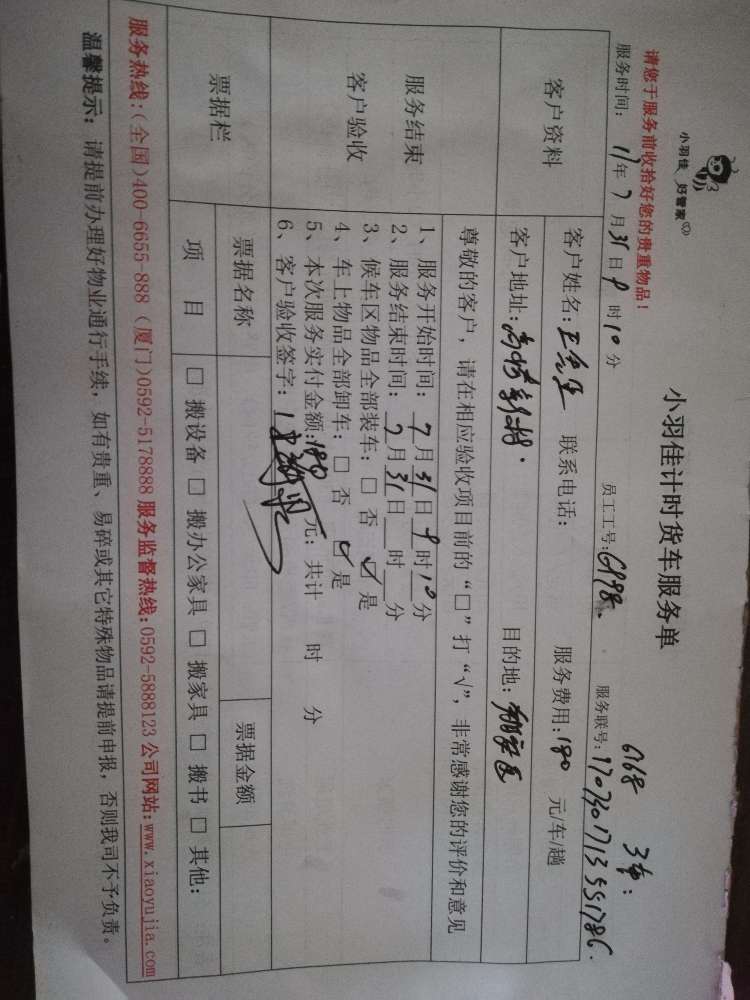 小羽佳 好管家
小羽佳计时货车服务单
请您于服务前收拾好您的贵重物品！
服务时间：17年7月31日9时10分 员工工号：G198、 服务联号：
客户资料
客户姓名：王先生 联系电话： 服务费用：180 元/车/趟
客户地址： 目的地：
服务结束
客户验收
尊敬的客户，请在相应验收项目前的“□”打“√”，非常感谢您的评价和意见
1、服务开始时间：7月31日9时10分
2、服务结束时间：7月31日 时 分
3、候车区物品全部装车：□ 否 ☑ 是
4、车上物品全部卸车：□ 否 ☑ 是
5、本次服务实付金额：180元；共计 时 分
6、客户验收签字：
票据栏
票据名称 票据金额
项 目 □ 搬设备 □ 搬办公家具 □ 搬家具 □ 搬书 □ 其他：
服务热线：（全国）400-6655-888（厦门）0592-5178888 服务监督热线：0592-5888123 公司网站：www.xiaoyujia.com
温馨提示：请提前办理好物业通行手续，如有贵重、易碎或其它特殊物品请提前申报，否则我司不予负责。